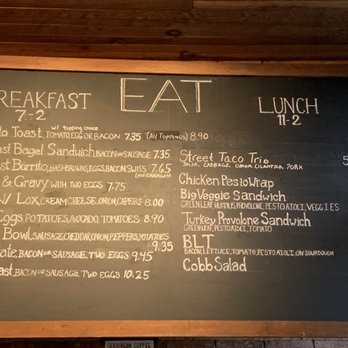 EAT
REAKFAST
7-2
w/ topping choice
TOAST, TOMATO, EGG OR BACON 7.35 (All Toppings) 8.90
Bagel Sandwich, BACON OR SAUSAGE 7.35
Burrito, HASHBROWNS, EGGS, BACON, SWISS 7.65
& Gravy WITH TWO EGGS 7.75
W/ LOX, CREAM CHEESE, ONION, CAPERS 8.90
Eggs, POTATOES, AVOCADO, TOMATOES 8.90
Bowl, SAUSAGE, CHEDDAR, ONION, PEPPERS, POTATOES
9.35
BACON OR SAUSAGE, TWO EGGS 9.45
BACON OR SAUSAGE, TWO EGGS 10.25
LUNCH
11-2
Street Taco Trio
SALSA, CABBAGE, ONION, CILANTRO, PORK
Chicken Pesto Wrap
Big Veggie Sandwich
GREENLEAF, HUMMUS, PROVOLONE, PESTO AIOLI, VEGGIES
Turkey Provolone Sandwich
GREENLEAF, PESTO AIOLI, TOMATO
BLT
BACON, LETTUCE, TOMATO, PESTO AIOLI, ON SOURDOUGH
Cobb Salad